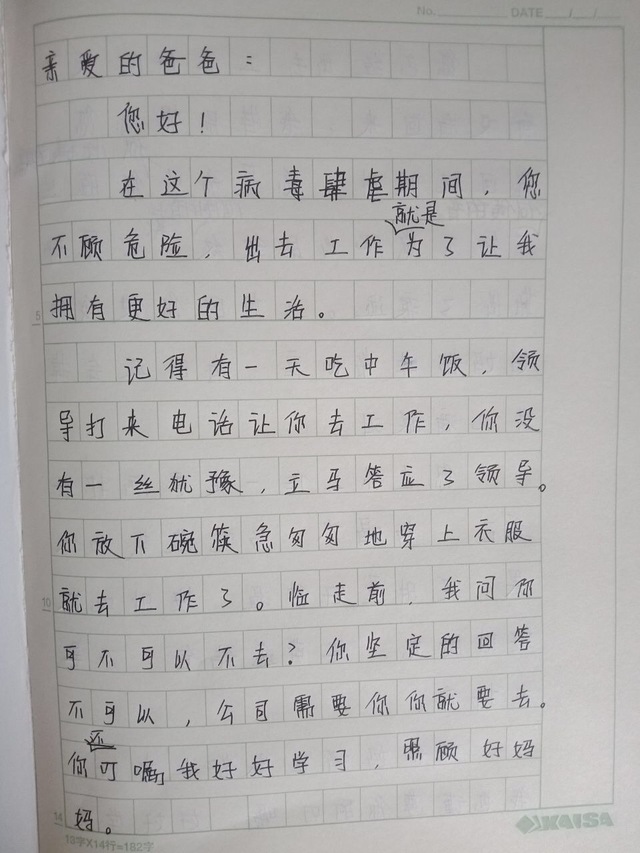 No. DATE / /
亲爱的爸爸：
您好！
在这个病毒肆虐期间，您
就是
不顾危险，出去工作为了让我
5
拥有更好的生活。
记得有一天吃中午饭，领
导打来电话让你去工作，你没
有一丝犹豫，立马答应了领导。
你放下碗筷急匆匆地穿上衣服
10
就去工作了。临走前，我问你
可不可以不去？你坚定的回答
不可以，公司需要你你就要去。
还
你叮嘱我好好学习，照顾好妈
14
妈。
KAISA
13字X14行=182字